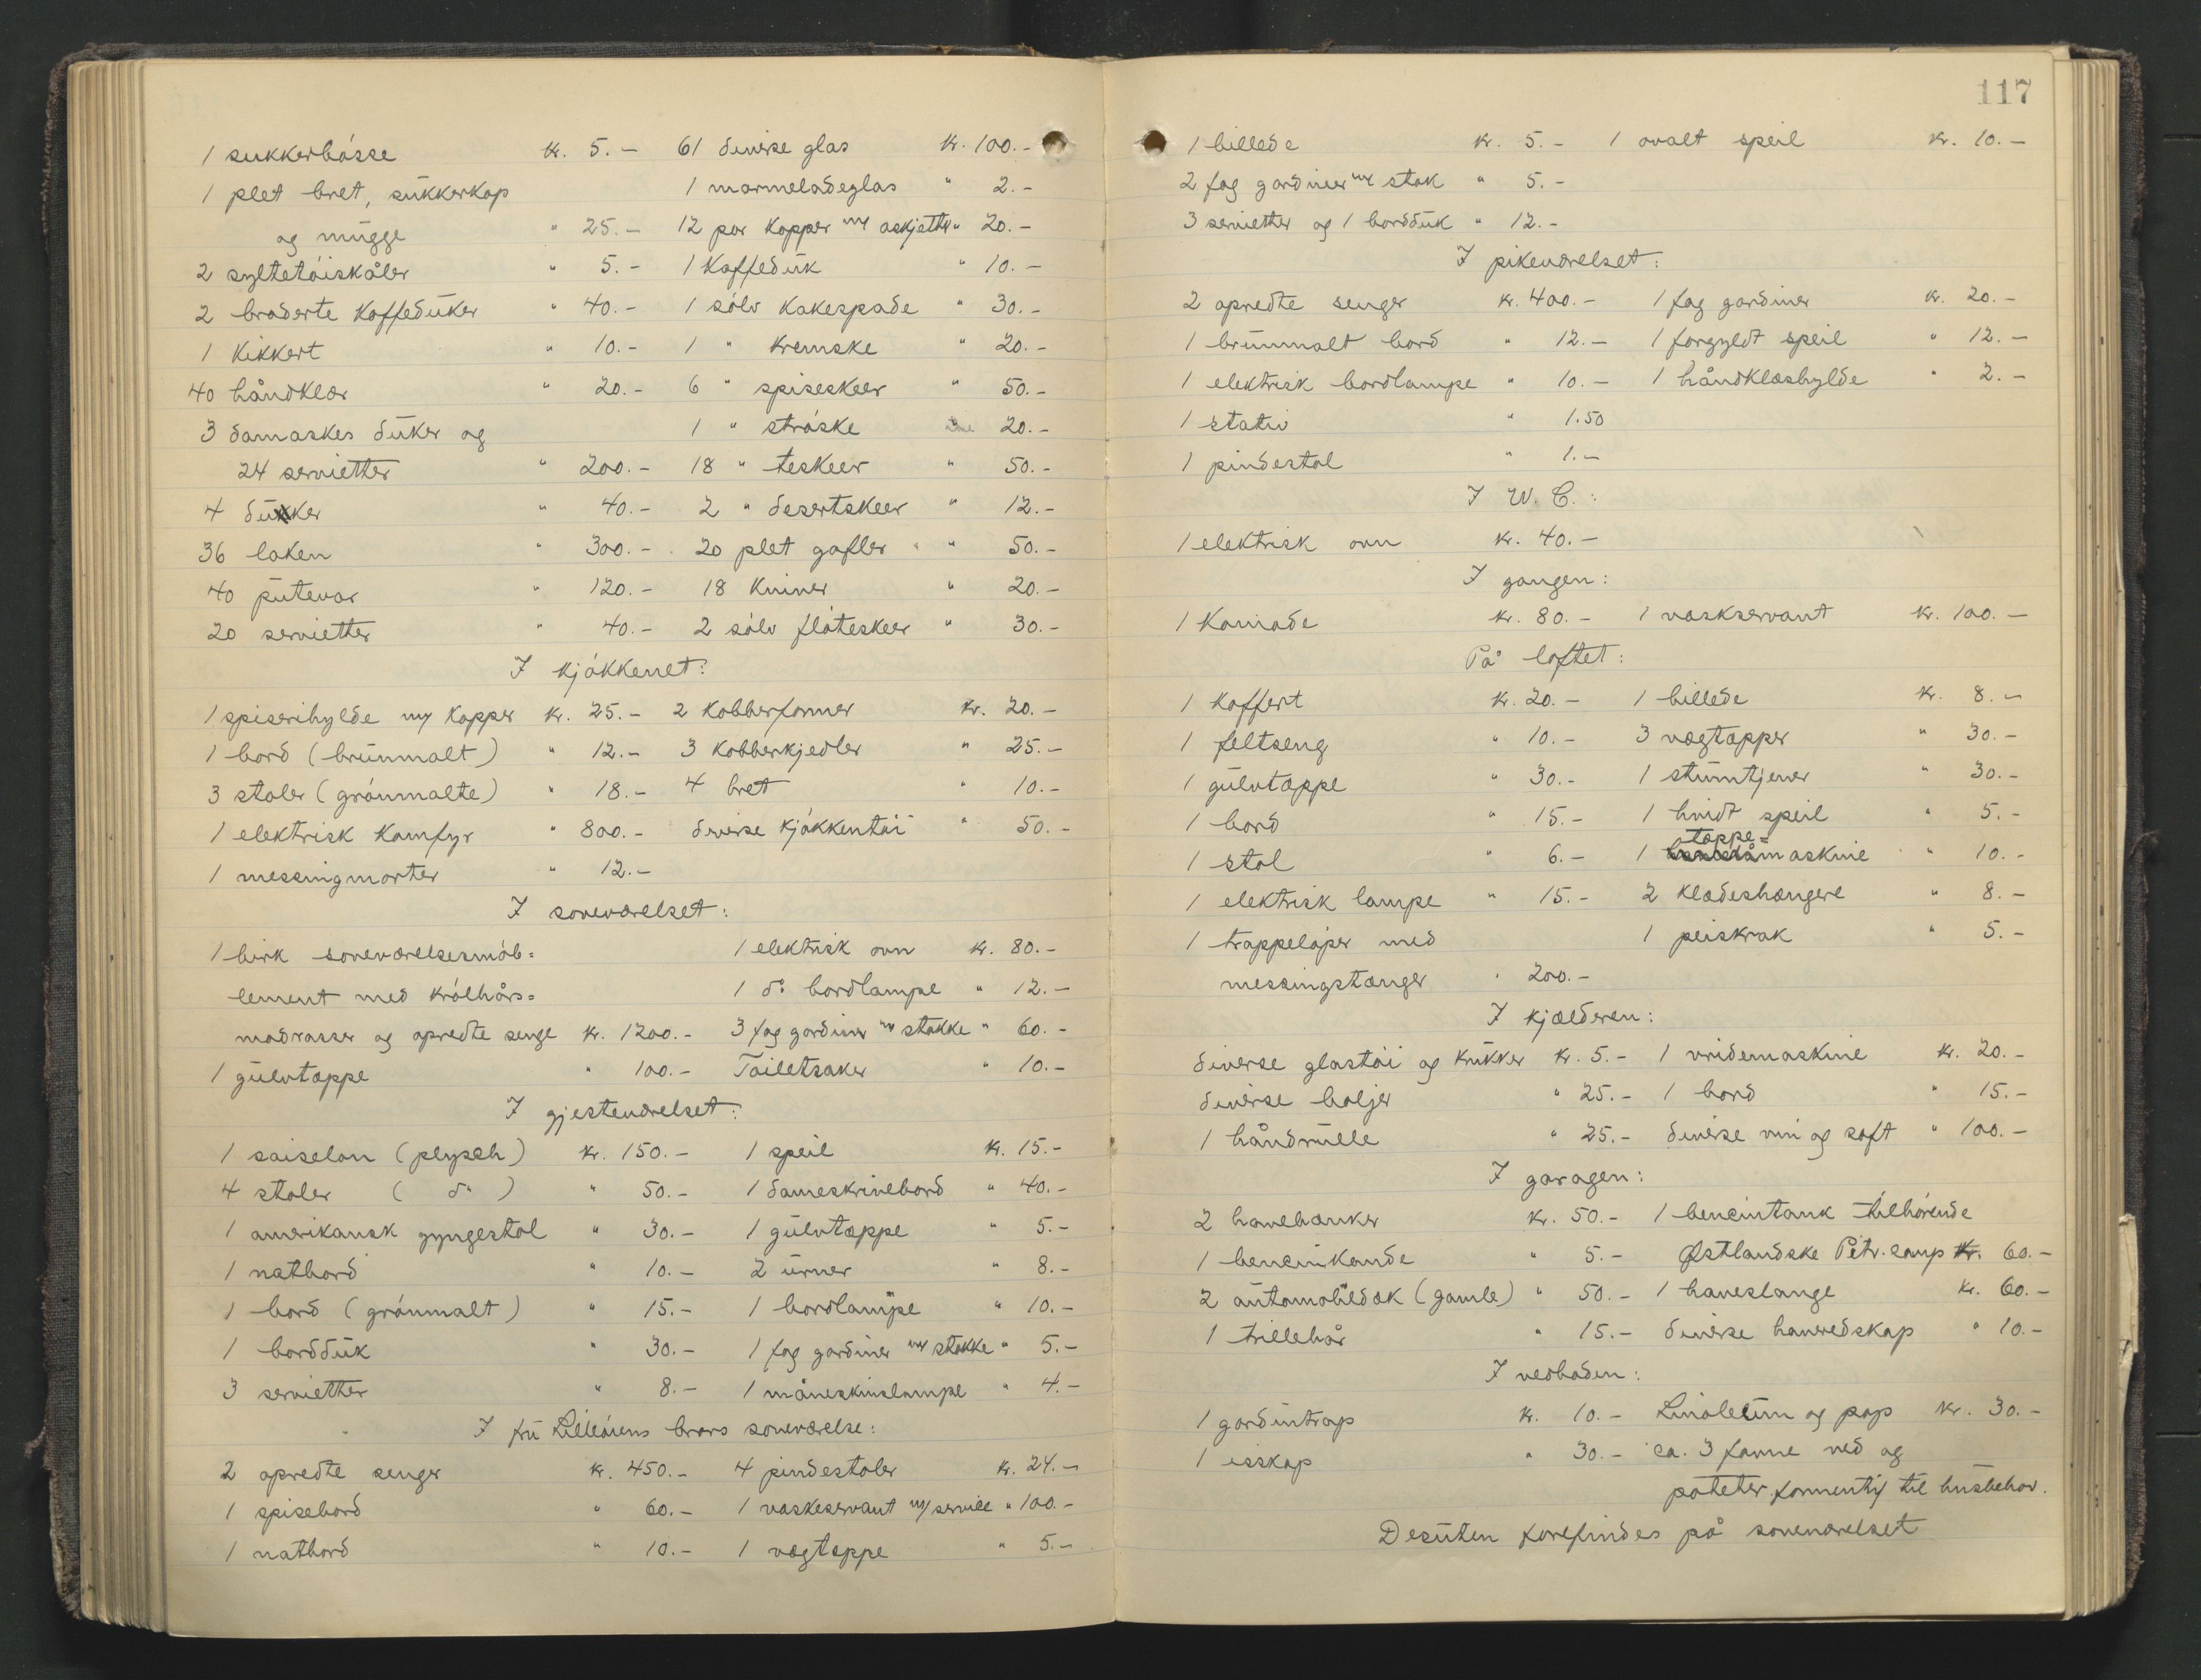 1 sukkerbøsse kr. 5.- 61 diverse glas kr. 100.-
1 plet bret, sukkerkop 1 marmeladeglas " 2.-
og mugge " 25.- 12 par kopper m/ askjetter " 20.-
2 syltetøiskåler " 5.- 1 kaffeduk " 10.-
2 broderte kaffeduker " 40.- 1 sølv kakespade " 30.-
1 kikkert " 10.- 1 " kremske " 20.-
40 håndklær " 20.- 6 " spiseskeer " 50.-
3 damaskes duker og 1 " strøske " 20.-
24 servietter " 200.- 18 " teskeer " 50.-
4 duker " 40.- 2 " desertskeer " 12.-
36 laken " 300.- 20 plet gafler " " 50.-
40 putevar " 120.- 18 kniver " 20.-
20 servietter " 40.- 2 sølv fløteskeer " 30.-
I kjøkkenet:
1 spiserihylde m/ kopper kr. 25.- 2 kobberformer kr. 20.-
1 bord (brunmalt) " 12.- 3 kobberkjedler " 25.-
3 stoler (grønmalte) " 18.- 4 bret " 10.-
1 elektrisk komfyr " 800.- diverse kjøkkentøi " 50.-
1 messingmorter " 12.-
I soveværelset:
1 birk soveværelsesmøb= 1 elektrisk ovn kr. 80.-
lement med krølhårs= 1 do bordlampe " 12.-
madrasser og opredte senge kr. 1200.- 3 fag gardiner m/ stokke " 60.-
1 gulvtæppe " 100.- Toiletsaker " 10.-
I gjesteværelset:
1 saiselon (plysch) kr. 150.- 1 speil kr. 15.-
4 stoler ( do ) " 50.- 1 dameskrivebord " 40.-
1 amerikansk gyngestol " 30.- 1 gulvtæppe " 5.-
1 natbord " 10.- 2 urner " 8.-
1 bord (grønmalt) " 15.- 1 bordlampe " 10.-
1 bordduk " 30.- 1 fag gardiner m/ stokke " 5.-
3 servietter " 8.- 1 måneskinslampe " 4.-
I fru Lilleøiens brors soveværelse:
2 opredte senger kr. 450.- 4 pindestoler kr. 24.-
1 spisebord " 60.- 1 vaskeservant m/ service " 100.-
1 natbord " 10.- 1 vægtæppe " 5.-
117
1 billede kr. 5.- 1 ovalt speil kr. 10.-
2 fag gardiner m/ stok " 5.-
3 servietter og 1 bordduk " 12.-
I pikeværelset:
2 opredte senger kr. 400.- 1 fag gardiner kr. 20.-
1 brunmalt bord " 12.- 1 forgyldt speil " 12.-
1 elektrisk bordlampe " 10.- 1 håndklæshylde " 2.-
1 stativ " 1.50
1 pindestol " 1.-
I W.C.:
1 elektrisk ovn kr. 40.-
I gangen:
1 komode kr. 80.- 1 vaskservant kr. 100.-
På loftet:
1 koffert kr. 20.- 1 billede kr. 8.-
1 feltseng " 10.- 3 vægtæpper " 30.-
1 gulvtæppe " 30.- 1 stumtjener " 30.-
1 bord " 15.- 1 hvidt speil " 5.-
1 stol " 6.- 1 tæppe-maskine " 10.-
1 elektrisk lampe " 15.- 2 klædeshængere " 8.-
1 trappeløper med 1 peiskrak " 5.-
messingstænger " 200.-
I kjælderen:
diverse glastøi og krukker kr. 5.- 1 vridemaskine kr. 20.-
diverse baljer " 25.- 1 bord " 15.-
1 håndrulle " 25.- diverse vin og saft " 100.-
I garagen:
2 havebænker kr. 50.- 1 bensintank tilhørende
1 bensinkande " 5.- Østlandske Petr. comp kr. 60.-
2 automobildæk (gamle) " 50.- 1 haveslange kr. 60.-
1 trillebår " 15.- diverse haveredskap " 10.-
I vedboden:
1 gardintrap kr. 10.- Linoleum og pap kr. 30.-
1 isskap " 30.- ca. 3 favne ved og
poteter formentlig til husbehov.
Desuten forefindes på soveværelset